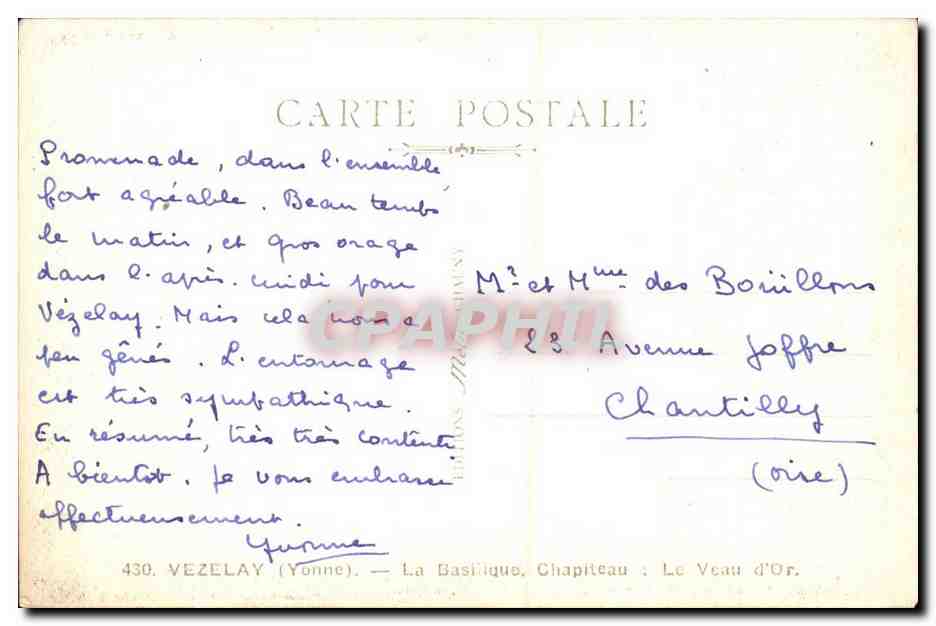 CARTE POSTALE
Promenade, dans l'ensemble
fort agréable. Beau temps
le matin, et gros orage
dans l'après-midi pour
Vézelay. Mais cela nous a
peu gênés. L'entourage
est très sympathique.
En résumé, très très contents
A bientôt. Je vous embrasse
affectueusement.
Yvonne
EDITIONS
CHAUNY
CPAPHIL
Mr et Mme des Bouillons
23 Avenue Joffre
Chantilly
(oise)
430. VEZELAY (Yonne). — La Basilique, Chapiteau : Le Veau d'Or.